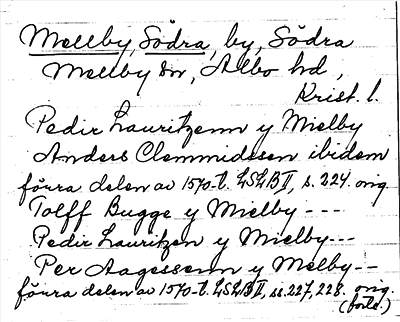 Mellby, Södra, by, Södra
Mellby sn, Albo hd,
Krist. l.
Pedir Lauritzenn y Mielby
Anders Clemmidssen ibidem
förra delen av 1570-t. LSLB II, s. 224 orig
Tolff Bugge y Mielby ---
Pedir Lauritzen y Mielby ---
Per Aagessenn y Melby --
förra delen av 1570-t. LSLB II, ss. 227, 228. orig.
(forts.)